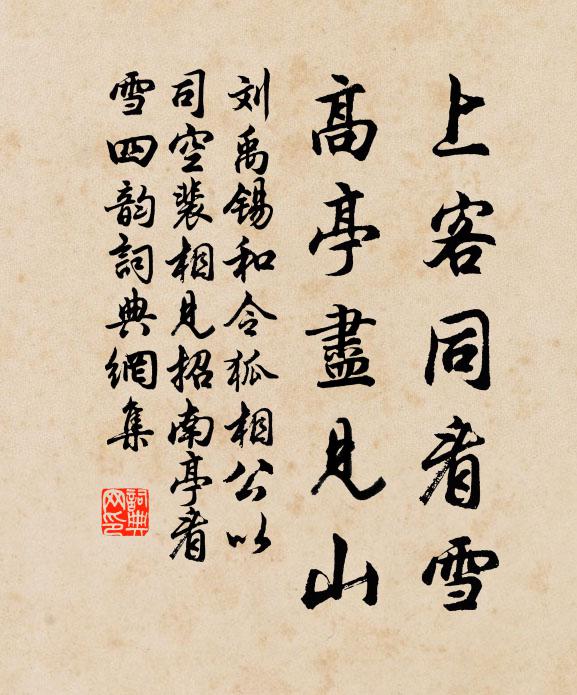 上客同看雪
高亭盡見山
刘禹锡和令狐相公以
司空裴相見招南亭看
雪四韵詞典網集
詞典网印